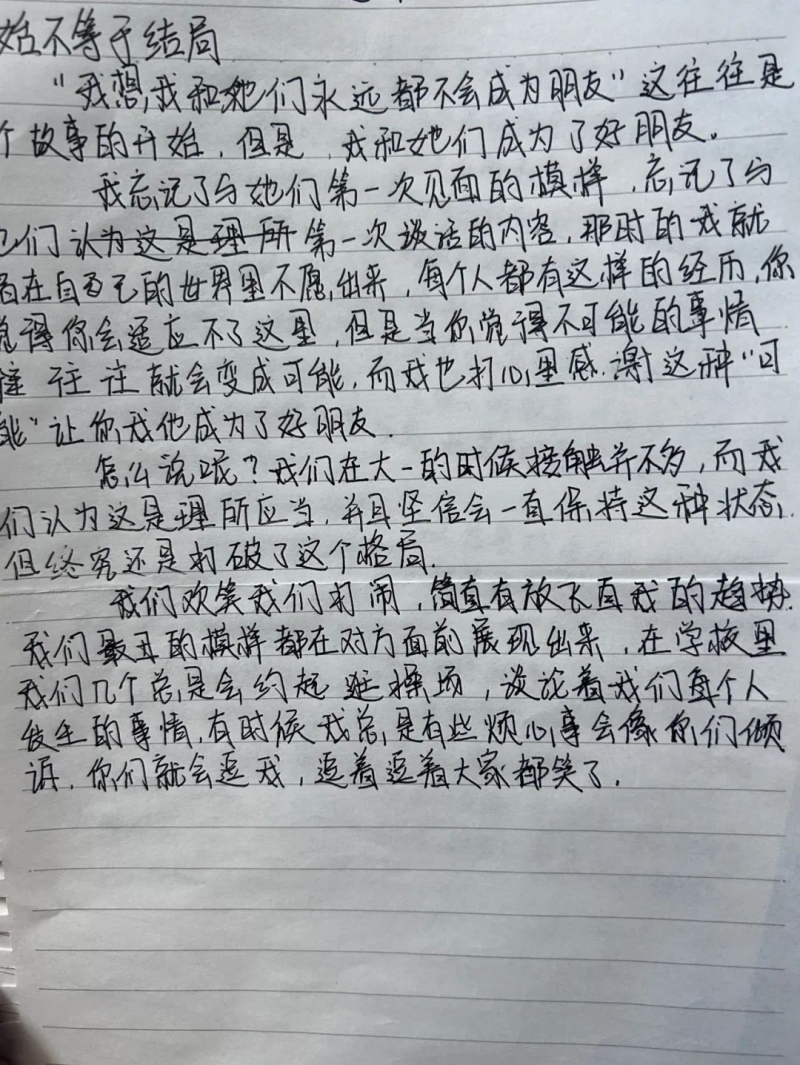 始不等于结局
“我想,我和她们永远都不会成为朋友”这往往是
个故事的开始,但是,我和她们成为了好朋友。
我忘记了与她们第一次见面的模样,忘记了与
她们认为这是理所第一次谈话的内容,那时的我就
在自己的世界里不愿出来,每个人都有这样的经历,你
觉得你会适应不了这里,但是当你觉得不可能的事情
往往就会变成可能,而我也打心里感谢这种“可
能”让你我他成为了好朋友.
怎么说呢?我们在大一的时候接触并不多,而我
们认为这是理所应当,并且坚信会一直保持这种状态.
但终究还是打破了这个格局.
我们欢笑我们打闹,简直有放飞自我的趋势.
我们最丑的模样都在对方面前展现出来,在学校里
我们几个总是会约起逛操场,谈论着我们每个人
发生的事情,有时候我总是有些烦心事会像你们倾
诉,你们就会逗我,逗着逗着大家都笑了.